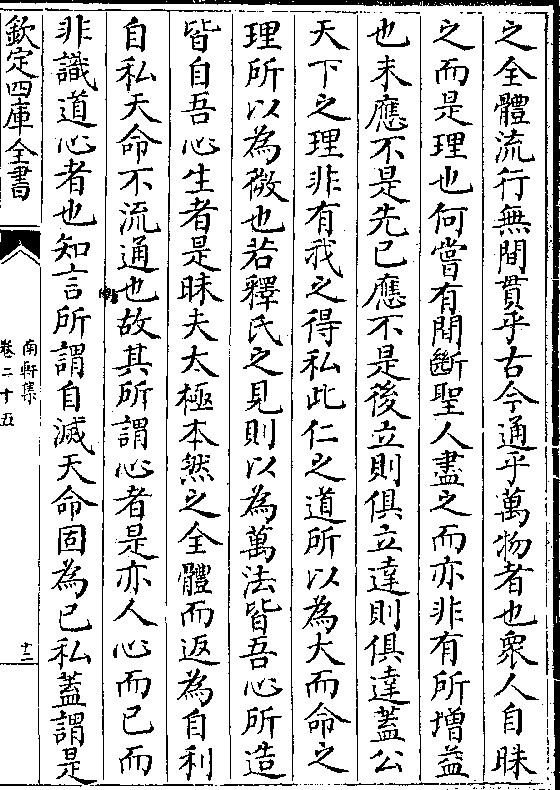 之全體流行無間貫乎古今通乎萬物者也衆人自昧
之而是理也何嘗有間斷聖人盡之而亦非有所增益
也未應不是先已應不是後立則俱立達則俱達蓋公
天下之理非有我之得私此仁之道所以為大而命之
理所以為微也若釋氏之見則以為萬法皆吾心所造
皆自吾心生者是昧夫太極本然之全體而返為自利
自私天命不流通也故其所謂心者是亦人心而已而
非識道心者也知言所謂自滅天命固為已私蓋謂是
欽定四庫全書
南軒集
卷二十五
十二